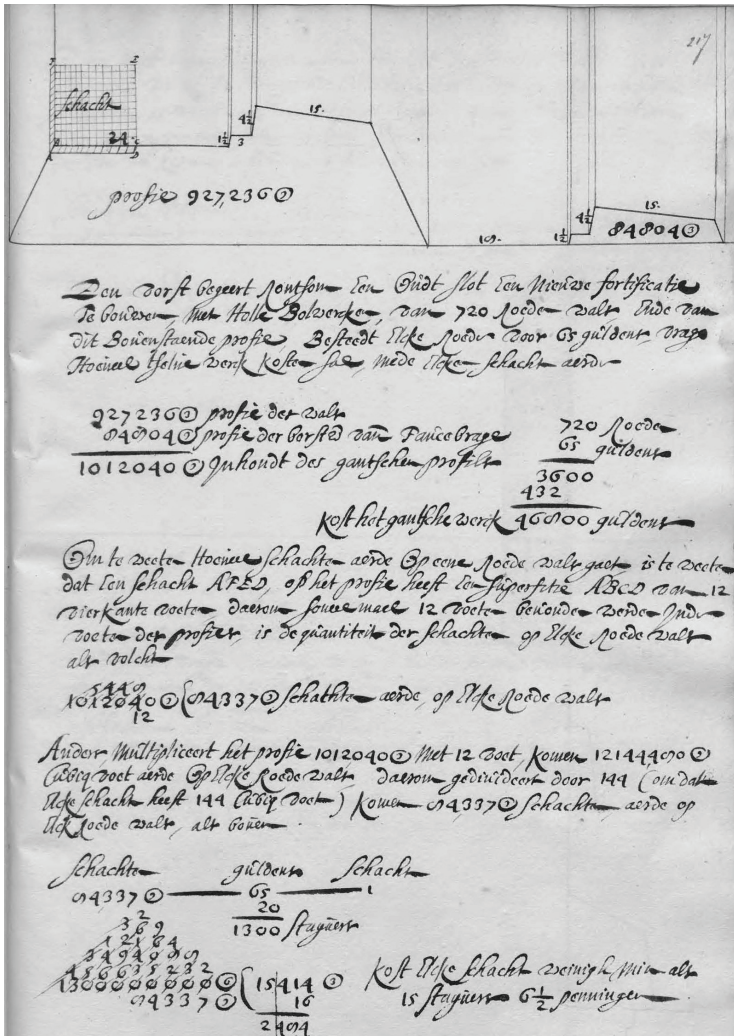 217
schacht
24
1½
3
4½
15.
profie 927,236②
10.
1½
4½
15.
84804②
Den vorst begeert Rontsom Een Oudt slot Een Nieuwe fortificatie
Te bouwen, Met Holle Bolwercke, van 720 Roede walt Ende van
dit Bovenstaende profie, Besteedt Elcke Roede voor 65 guldens, vrage
Hoeveel tselve werck koste sal, mede Elcke schacht aerde
927236② profie der walt 720 Roede
84804② profie der borstw van Faucebraye 65 guldens
1012040② Inhoudt des gantschen profilt 3600
432
kost het gantsche werck 46800 guldens
Om te weete Hoeveel schachte aerde Op eene Roede walt gaet is te weete
dat Een schacht AFED, op het profie heeft Een superfitie ABCD van 12
vierkante voete daerom soveel mael 12 voete bevonde werde Inde
voete der profiet, is de quantiteit der schachte op Elcke Roede walt
alt volcht
5449
1012040② (84337② Schachte aerde, op Elcke Roede walt
12
Anders, Multipliceert het profie 1012040② Met 12 voet, komen 12144480②
Cubiq voet aerde Op Elcke Roede walt, daerom gedivideert door 144 (om dat
Elcke schacht heeft 144 Cubiq voet) komen 84,337② Schachte aerde op
Elck Roede walt, alt boven.
Schachte guldens Schacht
84337② 65 1
20
1300 stuyvers
15414② kost Elcke schacht weinigh min alt
84337② 16 15 stuyvers 6½ penningen